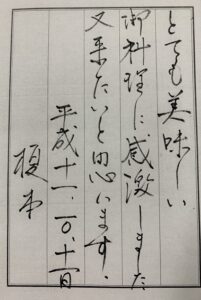 とても美味しい
御料理に感激しました
又来たいと思います。
平成十一.一〇.十一日
榎本